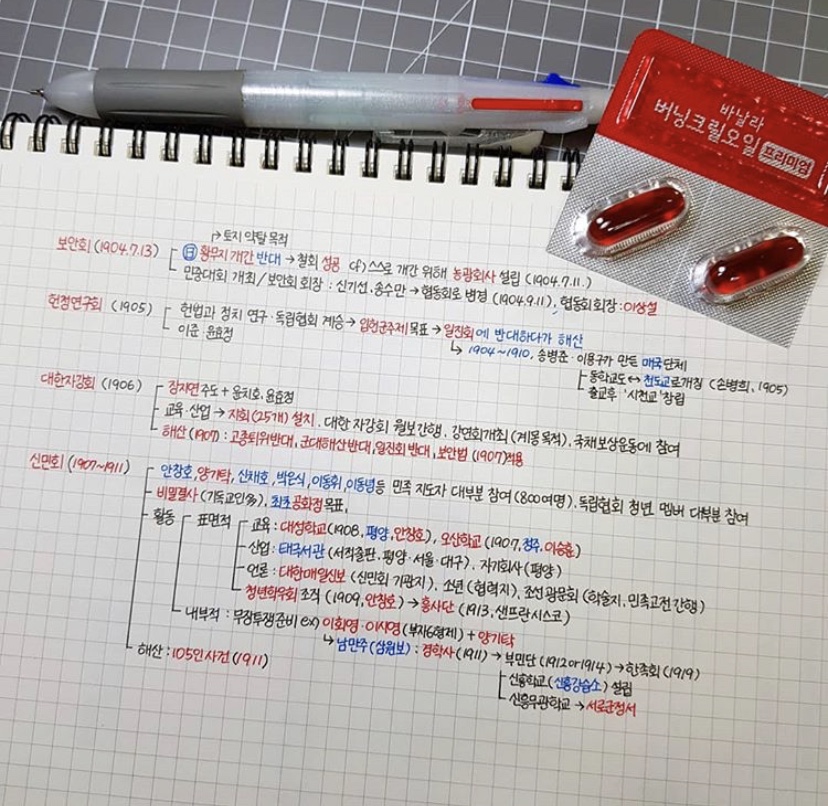 바날라
버닝크릴오일 프리미엄
↱토지 약탈 목적
보안회 (1904.7.13) 日 황무지 개간 반대 → 철회 성공 cf) 스스로 개간 위해 농광회사 설립 (1904.7.11.)
민중대회 개최 / 보안회 회장 : 신기선·송수만 → 협동회로 변경 (1904.9.11), 협동회 회장 : 이상설
헌정연구회 (1905) 헌법과 정치 연구 · 독립협회 계승 → 입헌군주제 목표 → 일진회에 반대하다가 해산
이준·윤효정
↳ 1904~1910, 송병준·이용구가 만든 매국단체
동학교도 ↔ 천도교로 개칭 (손병희, 1905)
출교후 '시천교' 창립
대한자강회 (1906) 장지연 주도 + 윤치호, 윤효정
교육·산업 → 지회(25개) 설치. 대한 자강회 월보간행. 강연회개최 (계몽 목적), 국채보상운동에 참여
해산 (1907) : 고종퇴위반대, 군대해산반대, 일진회 반대, 보안법 (1907)적용
신민회 (1907~1911) 안창호, 양기탁, 신채호, 박은식, 이동휘, 이동녕등 민족 지도자 대부분 참여 (800여명). 독립협회 청년 멤버 대부분 참여
비밀결사 (기독교인多), 최초 공화정 목표,
활동 표면적 교육 : 대성학교 (1908, 평양, 안창호), 오산학교 (1907, 정주, 이승훈)
산업 : 태극서관 (서적출판. 평양·서울·대구), 자기회사 (평양)
언론 : 대한매일신보 (신민회 기관지), 소년 (협력지), 조선 광문회 (학술지, 민족고전 간행)
청년학우회 조직 (1909, 안창호) → 흥사단 (1913, 샌프란시스코)
내부적 : 무장투쟁준비 ex) 이회영·이시영 (부자6형제) + 양기탁
↳ 남만주 (삼원보) : 경학사 (1911) → 부민단 (1912 or 1914) → 한족회 (1919)
신흥학교 (신흥강습소) 설립
신흥무관학교 → 서로군정서
해산 : 105인 사건 (1911)